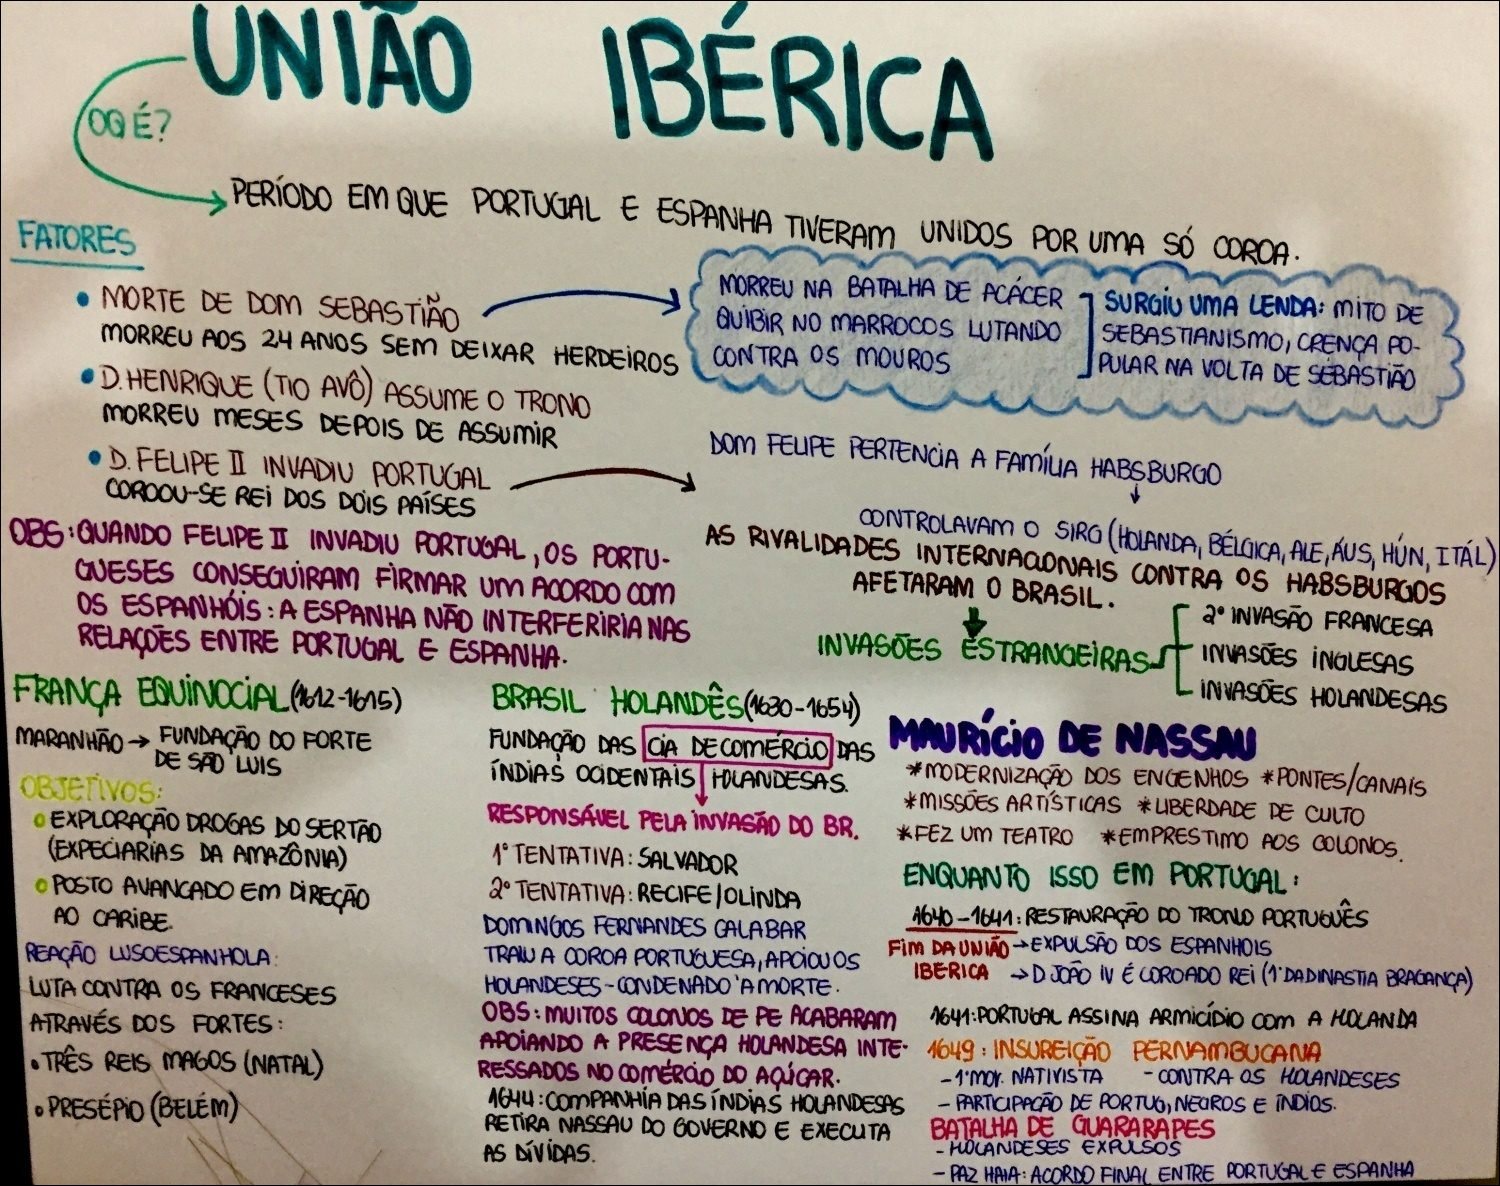 UNIÃO IBÉRICA
OQ É?
PERÍODO EM QUE PORTUGAL E ESPANHA TIVERAM UNIDOS POR UMA SÓ COROA.
FATORES
• MORTE DE DOM SEBASTIÃO
MORREU AOS 24 ANOS SEM DEIXAR HERDEIROS
• D.HENRIQUE (TIO AVÔ) ASSUME O TRONO
MORREU MESES DEPOIS DE ASSUMIR
• D.FELIPE II INVADIU PORTUGAL
COROOU-SE REI DOS DOIS PAÍSES
MORREU NA BATALHA DE ACÁCER
QUIBIR NO MARROCOS LUTANDO
CONTRA OS MOUROS
SURGIU UMA LENDA: MITO DE
SEBASTIANISMO, CRENÇA PO-
PULAR NA VOLTA DE SEBASTIÃO
DOM FELIPE PERTENCIA A FAMÍLIA HABSBURGO
CONTROLAVAM O SIRG (HOLANDA, BÉLGICA, ALE, ÁUS, HÚN, ITÁL)
AS RIVALIDADES INTERNACIONAIS CONTRA OS HABSBURGOS
AFETARAM O BRASIL.
INVASÕES ESTRANGEIRAS
2º INVASÃO FRANCESA
INVASÕES INGLESAS
INVASÕES HOLANDESAS
OBS: QUANDO FELIPE II INVADIU PORTUGAL, OS PORTU-
GUESES CONSEGUIRAM FIRMAR UM ACORDO COM
OS ESPANHÓIS: A ESPANHA NÃO INTERFERIRIA NAS
RELAÇÕES ENTRE PORTUGAL E ESPANHA.
FRANÇA EQUINOCIAL (1612-1615)
MARANHÃO → FUNDAÇÃO DO FORTE
DE SÃO LUIS
OBJETIVOS:
EXPLORAÇÃO DROGAS DO SERTÃO
(EXPECIARIAS DA AMAZÔNIA)
POSTO AVANCADO EM DIREÇÃO
AO CARIBE.
REAÇÃO LUSOESPANHOLA:
LUTA CONTRA OS FRANCESES
ATRAVÉS DOS FORTES:
• TRÊS REIS MAGOS (NATAL)
• PRESÉPIO (BELÉM)
BRASIL HOLANDÊS (1630-1654)
FUNDAÇÃO DAS CIA DE COMÉRCIO DAS
ÍNDIAS OCIDENTAIS HOLANDESAS.
RESPONSÁVEL PELA INVASÃO DO BR.
1º TENTATIVA: SALVADOR
2º TENTATIVA: RECIFE/OLINDA
DOMINGOS FERNANDES CALABAR
TRAIU A COROA PORTUGUESA, APOIOU OS
HOLANDESES - CONDENADO 'A MORTE.
OBS: MUITOS COLONOS DE PE ACABARAM
APOIANDO A PRESENÇA HOLANDESA INTE-
RESSADOS NO COMÉRCIO DO AÇÚCAR.
1644: COMPANHÍA DAS ÍNDIAS HOLANDESAS
RETIRA NASSAU DO GOVERNO E EXECUTA
AS DÍVIDAS.
MAURÍCIO DE NASSAU
*MODERNIZAÇÃO DOS ENGENHOS *PONTES/CANAIS
*MISSÕES ARTÍSTICAS *LIBERDADE DE CULTO
*FEZ UM TEATRO *EMPRESTIMO AOS COLONOS.
ENQUANTO ISSO EM PORTUGAL:
1640-1641: RESTAURAÇÃO DO TRONO PORTUGUÊS
FIM DA UNIÃO → EXPULSÃO DOS ESPANHOIS
IBÉRICA → D JOÃO IV É COROADO REI (1º DA DINASTIA BRAGANÇA)
1641: PORTUGAL ASSINA ARMICÍDIO COM A HOLANDA
1649: INSUREIÇÃO PERNAMBUCANA
- 1º MOV. NATIVISTA - CONTRA OS HOLANDESES
- PARTICIPAÇÃO DE PORTUG, NEGROS E ÍNDIOS.
BATALHA DE GUARARAPES
- HOLANDESES EXPULSOS
- PAZ HAIA: ACORDO FINAL ENTRE PORTUGAL E ESPANHA